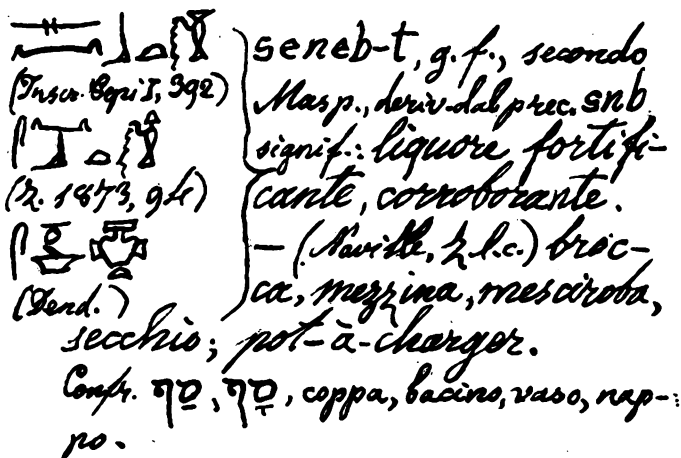 (Inscr. I, 392)
(Z. 1873, 94)
(Dend.)
seneb-t, g. f., secondo
Masp., deriv. dal prec. snb
signif.: liquore fortifi-
cante, corroborante.
— (Naville, Z l.c.) broc-
ca, mezzina, mesciroba,
secchio; pot-à-charger.
Confr. סַף, סָף, coppa, bacino, vaso, nap-
po.